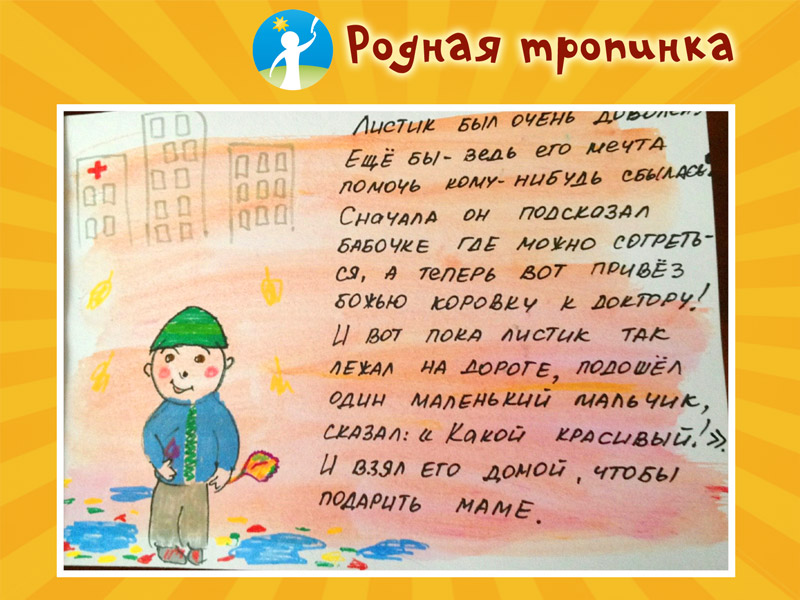 Родная тропинка
Листик был очень доволен.
Ещё бы - ведь его мечта
помочь кому-нибудь сбылась.
Сначала он подсказал
бабочке где можно согреть-
ся, а теперь вот привёз
божью коровку к доктору!
И вот пока листик так
лежал на дороге, подошёл
один маленький мальчик,
сказал: « Какой красивый!».
И взял его домой, чтобы
подарить маме.